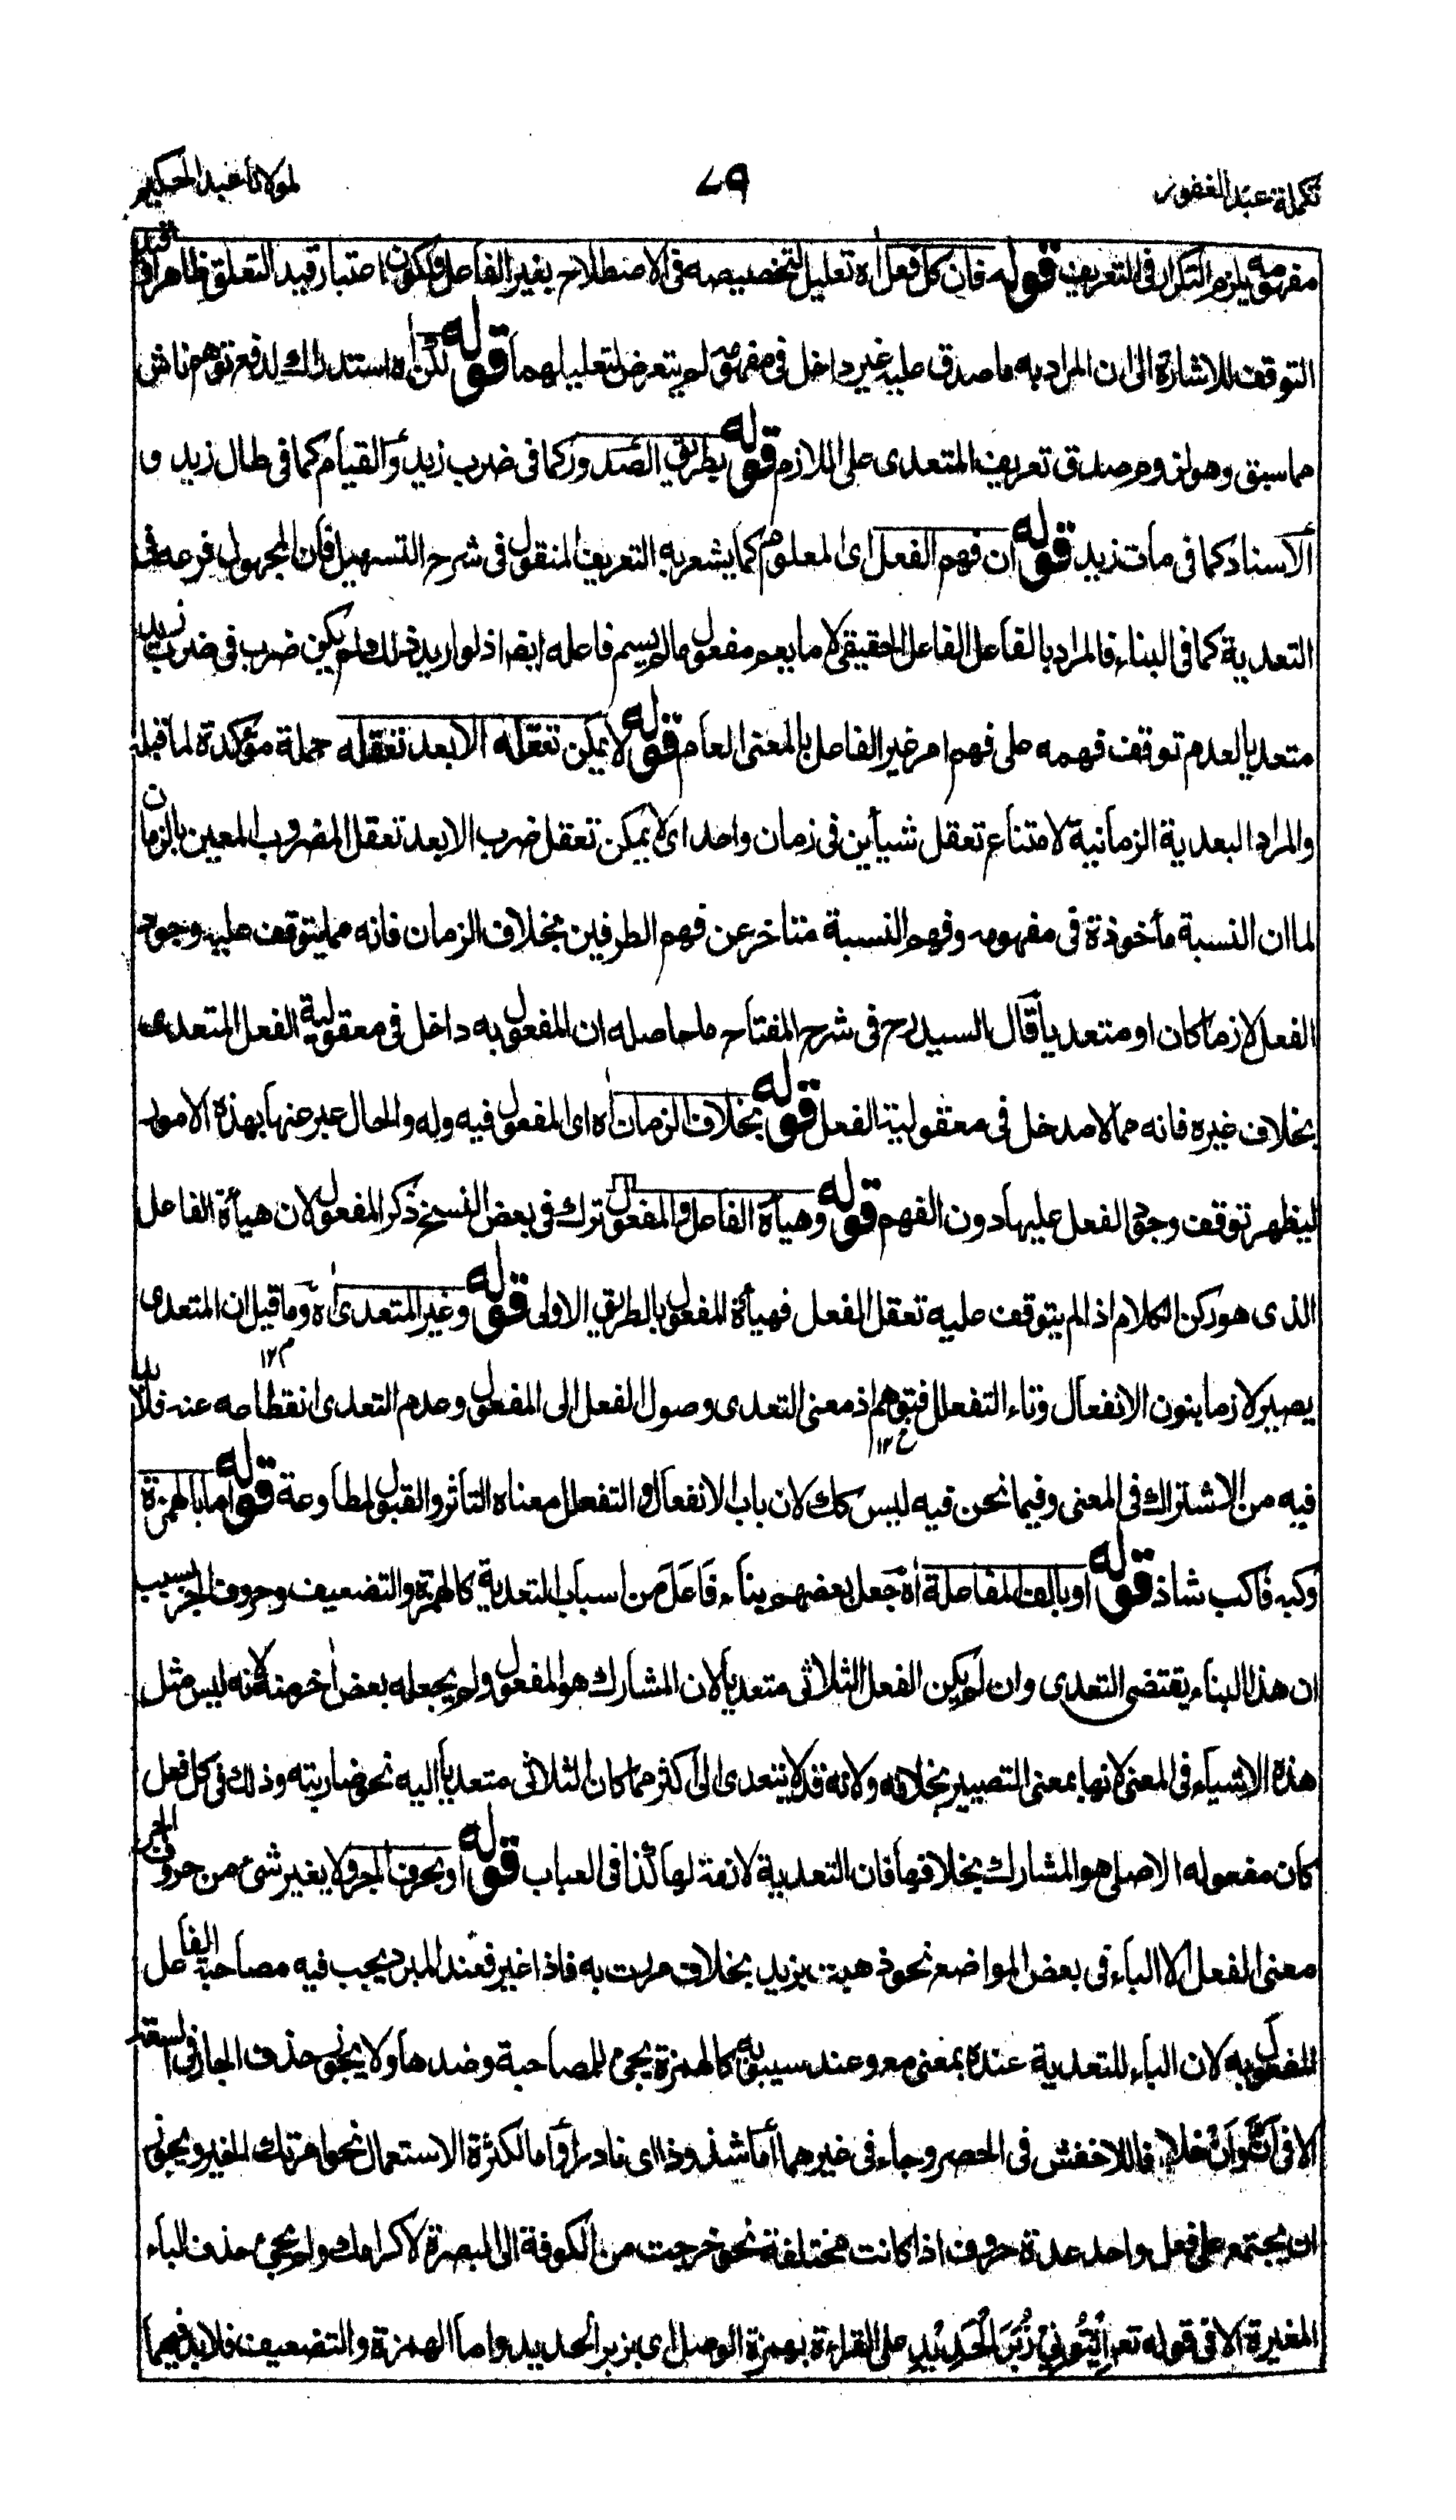 تكملة عبد الغفور
٧٩
لمولانا عبد الحكيم
مفهومه يلزم التكرار فى التعريف قوله فان كل فعل اه تعليل لتخصيصه فى الاصطلاح بغير الفاعل ولكون اعتبار قيد التعلق ظاهرا وقيد
التوقف للاشارة الى ان المراد به ما صدق عليه غير داخل فى مفهومه لم يتعرض لتعليلهما قوله لكن اه استدراك لدفع توهم ناش
مما سبق وهو لزوم صدق تعريف المتعدى على اللازم قوله بطريق الصدور كما فى ضرب زيد والقيام كما فى طال زيد و
الاسناد كما فى مات زيد قوله ان فهم الفعل اى المعلوم كما يشعر به التعريف المنقول فى شرح التسهيل فان المجهول فرعه فى
التعدية كما فى البناء فالمراد بالفاعل الفاعل الحقيقى لا ما يعم مفعول ما لم يسم فاعله ايضا اذ لو اريد ذلك ولم يكن ضرب فى ضرب زيد
متعديا لعدم توقف فهمه على فهم امر غير الفاعل بالمعنى العام قوله لا يمكن تعقله الا بعد تعقله جملة مؤكدة لما قبله
والمراد البعدية الزمانية لامتناع تعقل شيأين فى زمان واحد اى لا يمكن تعقل ضرب الا بعد تعقل المضروب المعين بالزمان
لما ان النسبة مأخوذة فى مفهومه وفهم النسبة متاخر عن فهم الطرفين بخلاف الزمان فانه مما يتوقف عليه وجود
الفعل لازما كان او متعديا قال السيد رح فى شرح المفتاح ما حاصله ان المفعول به داخل فى معقولية الفعل المتعدى
بخلاف غيره فانه مما لا مدخل فى معقولية الفعل قوله بخلاف الزمان اه اى المفعول فيه وله والحال عبر عنها بهذه الامور
ليظهر توقف وجود الفعل عليها دون الفهم قوله وهيأة الفاعل والمفعول ترك فى بعض النسخ ذكر المفعول لان هيأة الفاعل
الذى هو ركن الكلام اذا لم يتوقف عليه تعقل الفعل فهيأة المفعول بالطريق الاولى قوله وغير المتعدى اه وما قيل ان المتعدى
يصير لازما بنون الانفعال وتاء التفعلل فتوهم اذ معنى التعدى وصول الفعل الى المفعول وعدم التعدى انقطاعه عنه فلا بد
فيه من الاشتراك فى المعنى وفيما نحن فيه ليس كك لان باب الانفعال والتفعلل معناه التأثر والقبول لمطاوعة قوله اما بالهمزة
وكبه فاكب شاذ قوله او بالف المفاعلة اه جعل بعضهم بناء فَاعَلَ من اسباب التعدية كالهمزة والتضعيف وحروف الجر بسبب
ان هذا البناء يقتضى التعدى وان لم يكن الفعل الثلاثى متعديا لان المشارك هو المفعول ولم يجعله بعض اخر منه لانه ليس مثل
هذه الاشياء فى المعنى لانها بمعنى التصيير بخلافه ولانه قد لا يتعدى الى اكثر مما كان الثلاثى متعديا اليه نحو ضاربته وذلك فى كل فعل
كان مفعوله الاصلى هو المشارك بخلافها فان التعدية لازمة لها كذا فى العباب قوله او بحرف الجر ولا يغير شئ من حروف الجر
معنى الفعل الا الباء فى بعض المواضع نحو ذهبت بزيد بخلاف مررت به فاذا غير فعند المبرد يجب فيه مصاحبة الفاعل
المفعول به لان الباء للتعدية عنده بمعنى مع وعند سيبويه كالهمزة يجئ للمصاحبة وضدها ولا يجوز حذف الجار فى السعة
الا فى اَنَّ وَاَنْ خلافا للاخفش فى الحصر وجاء فى غيرهما اما شذوذا اى نادرا واما لكثرة الاستعمال نحو امرتك الخير ويجوز
ان يجتمع على فعل واحد عدة حروف اذا كانت مختلفة نحو خرجت من الكوفة الى البصرة لاكرامك ولم يجئ حذف الباء
المغيرة الا فى قوله تعالى اِيْتُوْنِيْ زُبَرَ الْحَدِيْدِ على القراءة بهمزة الوصل اى بزبر الحديد واما الهمزة والتضعيف فلا بد فيهما